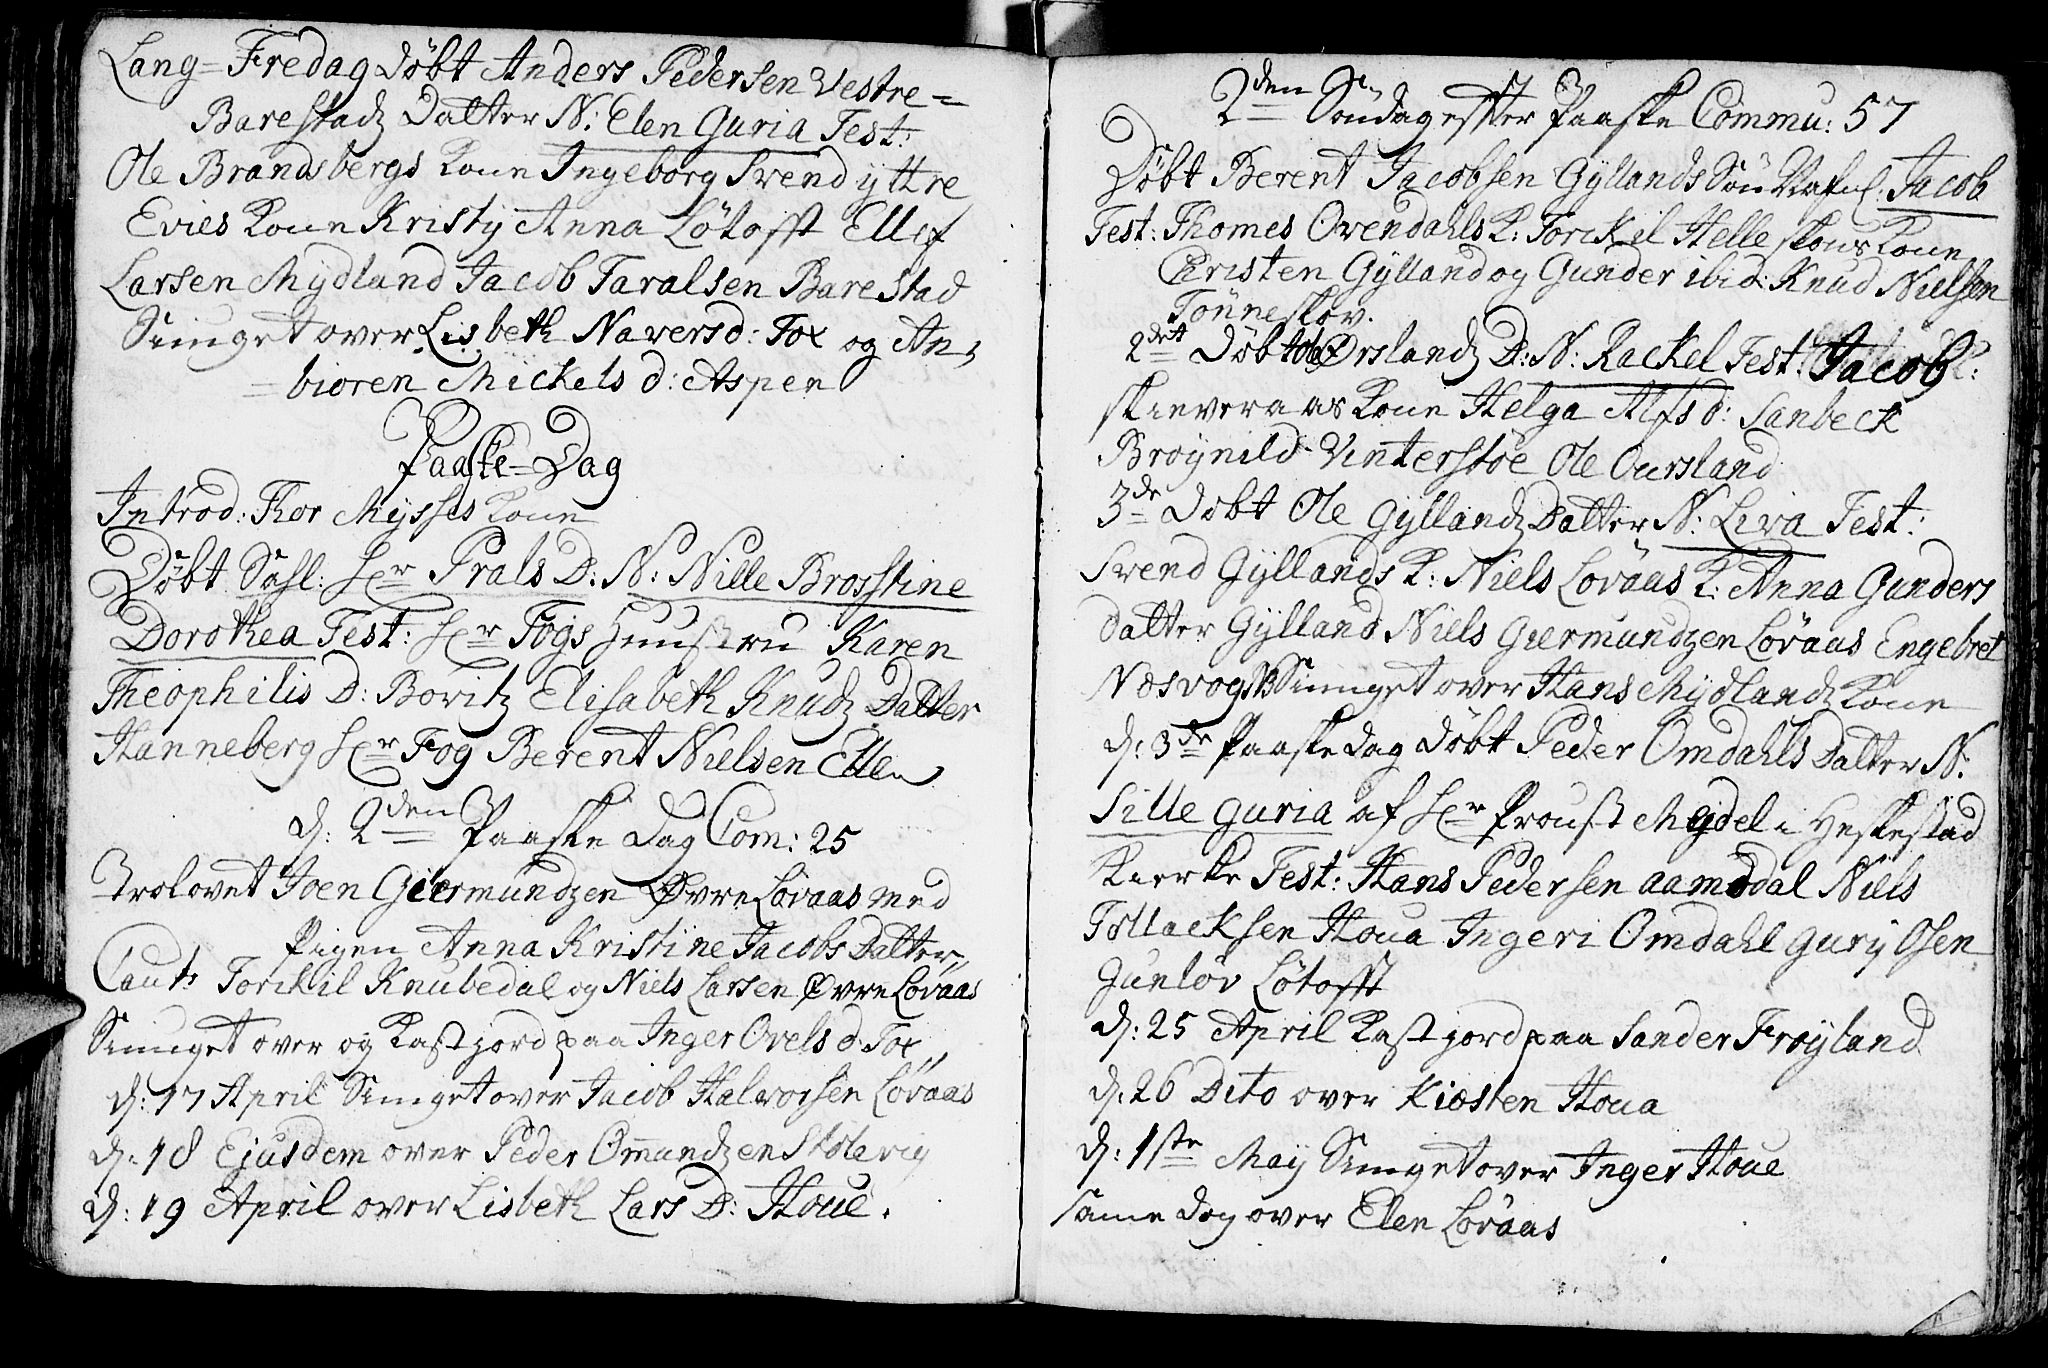 Lang=Fredag Døbt Anders Pedersen Vestre=
Barestadz Datter N: Elen Guria Test:
Ole Brandsbergs Kone Ingeborg Svend yttre
Evies Kone Kristy Anna Løtofft Ellef
Larsen Mydland Jacob Taralsen Barestad
Siunget over Lisbeth Naversd: Tox og An,
=bioren Mickels d: Aspen
Paaske=Dag
Introd: Thor Mysses Kone
Døbt Sahl: Hr Prals D: N: Nille Brosstine
Dorothea Test: Hr Fogs Huustru Karen
Theophilis D: Boritz Elisabeth Knudz Datter
Hanneberg Hr Fog Berent Nielsen Ellen
d: 2den Paaske Dag Com: 25
Trolovet Joen Giermundzen Øvre Lovaas med
Pigen Anna Kristine Jacobs Datter,,
Caut: Torckil Knubedal og Niels Larsen Øvre Lovaas
Siunget over og Kast jord paa Inger Ovels d: Tox,,
d: 17 April Siunget over Jacob Halvorsen Lovaas
d: 18 Ejusdem over Peder Omundzen Stolevig
d: 19 April over Lisbeth Lars D: Houe.
2den Søndag efter Paaske Commu: 57
Døbt Berent Jacobsen Gyllands Søn Nafnl: Jacob
Test: Thomes Ovendahls K: Torckil Helleskovs Kone
Christen Gylland og Gunder ibid: Knud Nielsen
Tønneskov.
2det Døbt Ola Ørslandz D: N: Rackel Test: Jacob
skieveraas Kone Helga Alfsd: Sanbeck
Brøynild Vinterstøe Ole Oursland
3de Døbt Ole Gyllandz Datter N: Liva Test:
Svend Gyllands K: Niels Lovaas K: Anna Gunders
datter Gylland Niels Giermundzen Lovaas Engebret
Nesvog Siunget over Hans Mydlandz Kone
d: 3de Paaske dag Døbt Peder Omdahls Datter N:
Sille Guria af Hr Proust Mejdel i Heskestad
Kierke Test: Hans Pedersen Aamodal Niels
Tollacksen Houa Ingeri Omdahl Gury Osen
Gunlov Løtofft
d: 25 April Kast jord paa Sander Frøyland
d: 26 Dito over Kiosten Houa
d: 1ste May Siunget over Inger Houe
same dag over Elen Lovaas